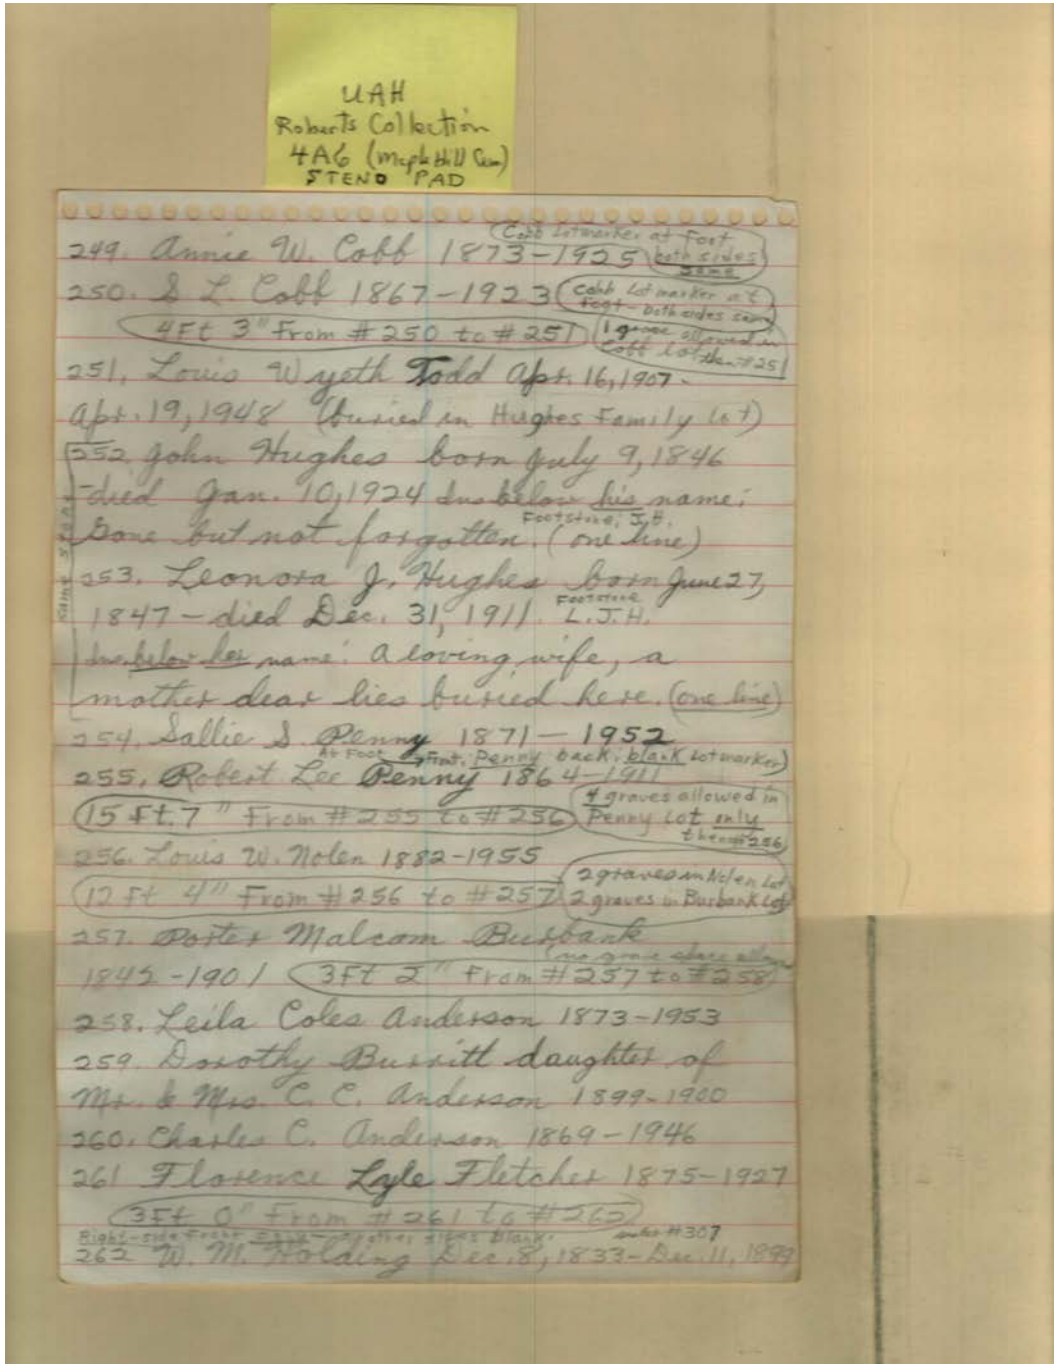 UAH
Roberts Collection
4A6 (Maple Hill Cem)
STENO PAD
Cobb Lotmarker at Foot
249. Annie W. Cobb 1873-1925 both sides
same
250. S L. Cobb 1867-1923 Cobb Lotmarker at
Foot - both sides same
4Ft 3" From #250 to #251 1 grave allowed in
Cobb Lot then #251
251. Louis Wyeth Todd Apr. 16, 1907-
Apr. 19, 1948 (buried in Hughes Family Lot)
252 John Hughes born July 9, 1846
same stone
-died Jan. 10, 1924 Ins. below his name:
Footstone: J.H.
Gone but not forgotten. (one line)
253. Leonora J. Hughes born June 27,
1847-died Dec. 31, 1911. Footstone
L.J.H.
Ins. below her name: A loving wife, a
mother dear lies buried here. (one line)
254. Sallie S. Penny 1871-1952
At Foot Front: Penny back: blank Lotmarker)
255. Robert Lee Penny 1864-1911
15 Ft. 7" From #255 to #256 4 graves allowed in
Penny Lot only
then #256
256. Louis W. Nolen 1882-1955
12 Ft 4" From #256 to #257 2 graves in Nolen Lot
2 graves in Burbank Lot
257. Porter Malcom Burbank
(no grave space allowed
1842-1901 3Ft 2" From #257 to #258
258. Leila Coles Anderson 1873-1953
259. Dorothy Burritt daughter of
Mr. & Mrs. C. C. Anderson 1899-1900
260. Charles C. Anderson 1869-1946
261 Florence Lyle Fletcher 1875-1927
3Ft 0" From #261 to #262
Right-side Front other sides blank. #307
262 W. M. Holding Dec. 8, 1833-Dec. 11, 1899